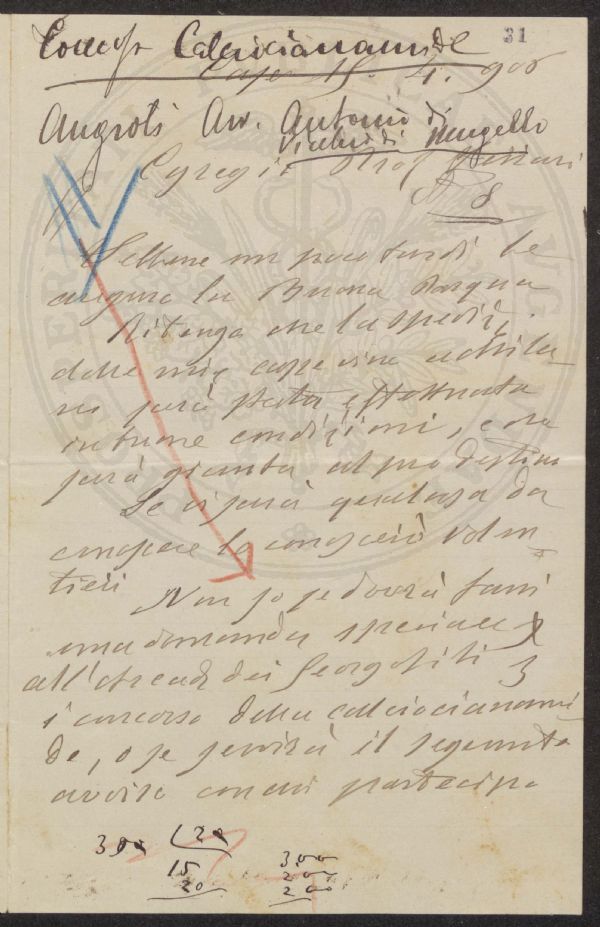 31
Concorso Calciocianamide
15. 4. 906
Angroti Avv. Antonio di
Vicchio di Mugello
Egregio Prof
Sebbene un poco tardi Le
auguro la Buona Pasqua
Ritengo che la spediz.
delle mie
sarà stata effettuata
in buone condizioni, e ora
sarà giunta al suo destino
Se vi sarà qualcosa da
conoscere lo conoscerò volen
tieri
Non so se dovrà farsi
una domanda speciale
all'Accad. dei Georgofili
i concorso della calciocianami
de, o se servirà il seguente
avviso con cui partecipo
300 120
15 300
20 200
200